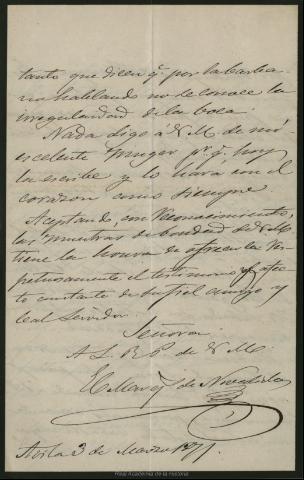 tanto que dicen q. por la barba
no hablando no se conoce la
irregularidad de la boca.
Nada digo á V.M. de mi
escelente muger pr. q. hoy
la escribe y lo hara con el
corazon como siempre
Aceptando, con reconocimiento,
las muestras de bondad de V.M.
tiene la honra de ofrecerla res
petuosamente el testimonio y afecto
constante de su fiel amigo y
leal servidor.
Señora
A L R P de V.M.
El Marq. de Novaliches
Avila 3 de Marzo 1877.
Real Academia de la Historia